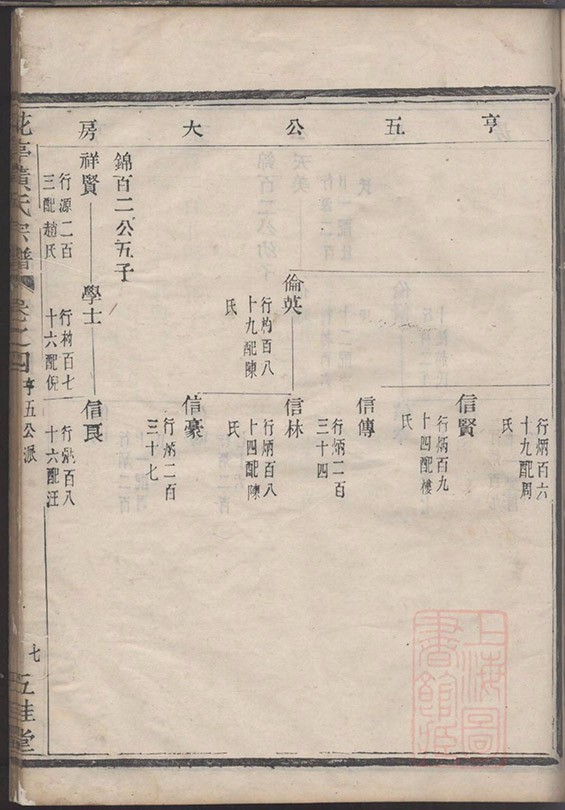 亨五公大房
行炳百六
十九配周
氏
信賢
行炳百九
十四配樓
氏
信傳
行炳二百
三十四
倫英
行杓百八
十九配陳
氏
信林
行炳百八
十四配陳
氏
信豪
行炳二百
三十七
錦百二公五子
祥賢
行源二百
三配趙氏
學士
行杓百七
十六配倪
信良
行炳百八
十六配汪
花亭黃氏宗譜
卷之四
亨五公派
七
五桂堂
上海圖
書館藏